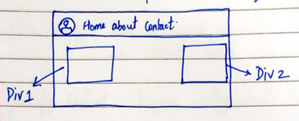 Home about Contact.
Div 1
Div 2